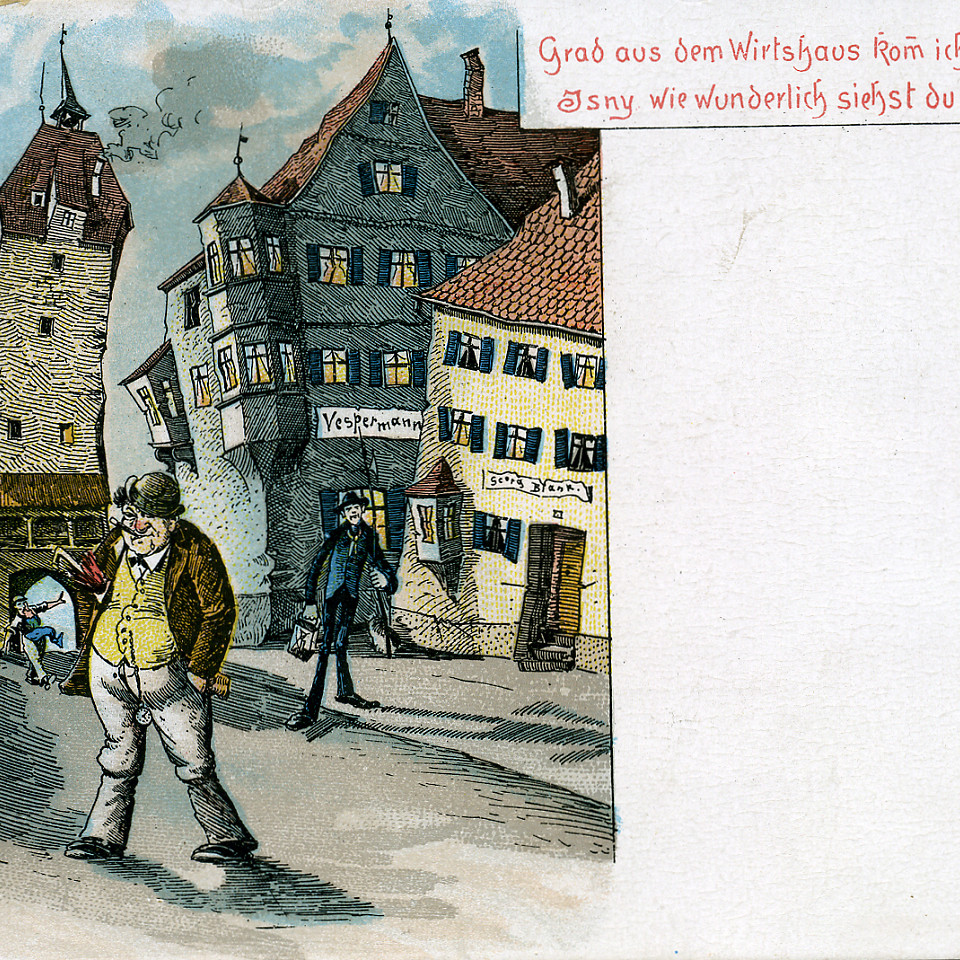 Grad aus dem Wirtshaus kom̄ ich
Isny wie wunderlich siehst du
Vespermann
Georg Blank.